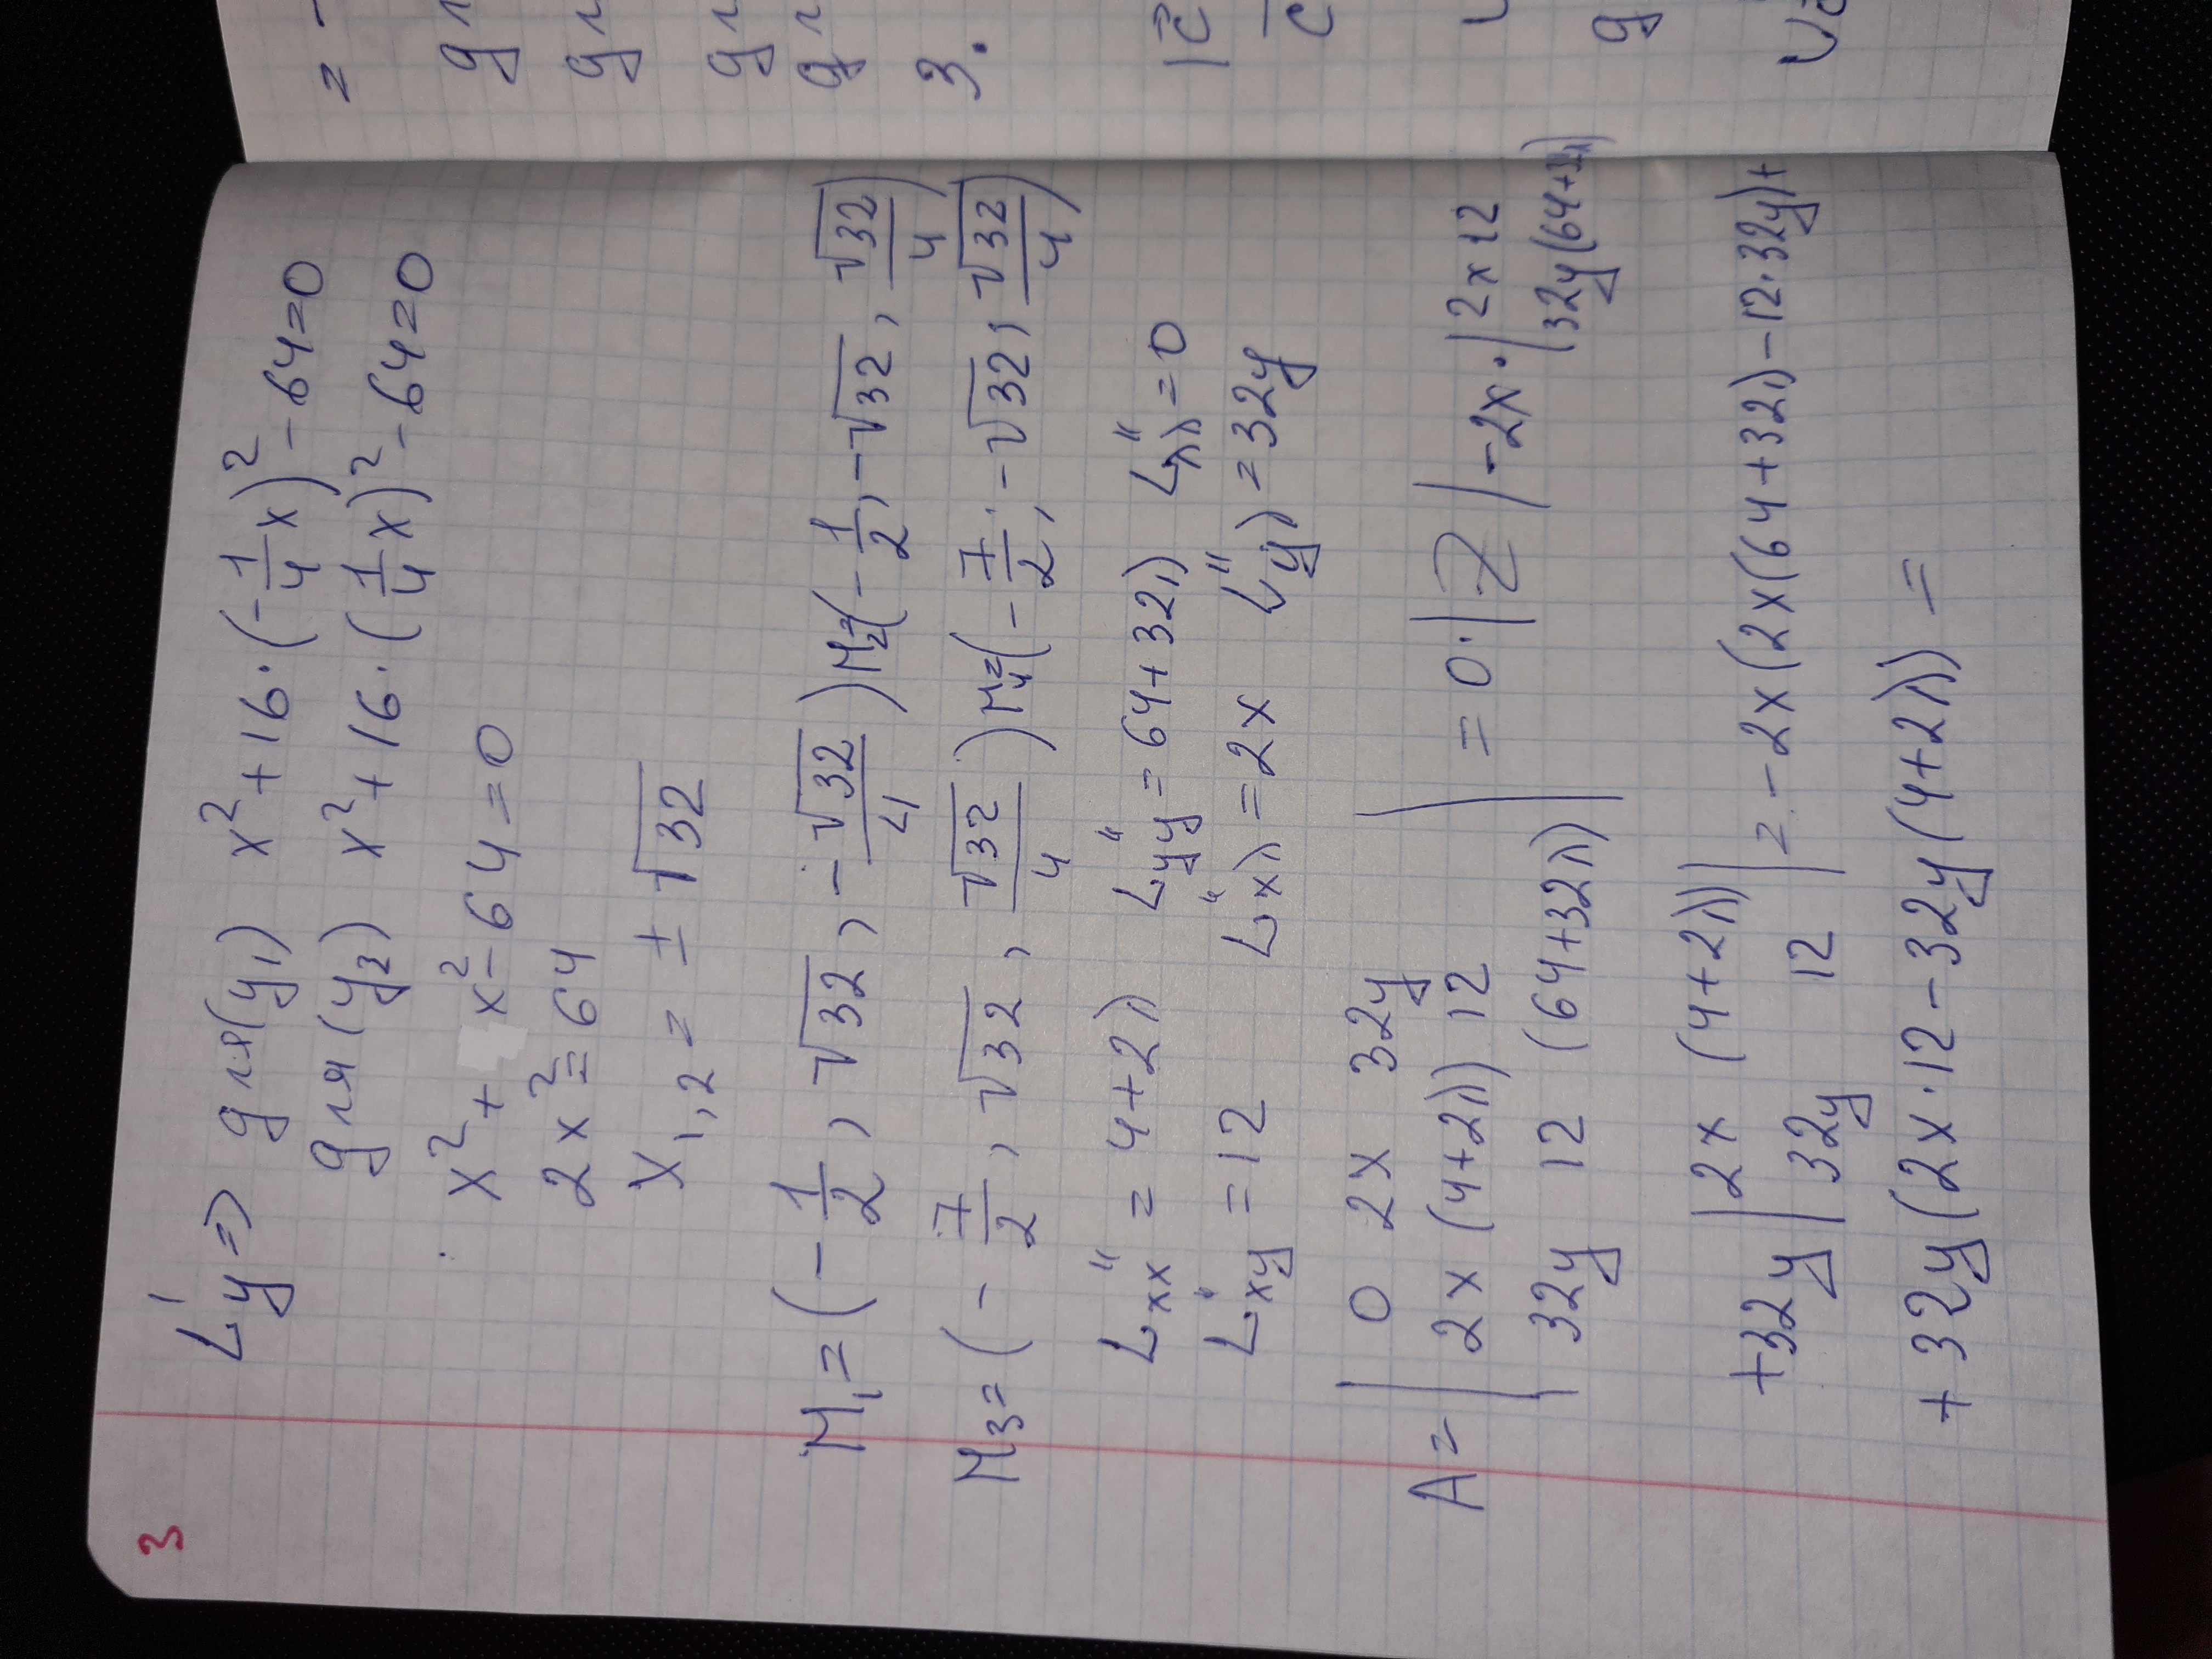 3
L'y => для(y₁) x² + 16·(-1/4 x)² - 64=0
для(y₂) x² + 16·(1/4 x)² - 64=0
x² + x² - 64 = 0
2x² = 64
x₁,₂ = ± √32
M₁ = (-1/2, √32, -√32/4) M₂=(-1/2, -√32, √32/4)
M₃ = (-7/2, √32, √32/4) M₄=(-7/2; -√32; √32/4)
L''xx = 4+2λ L''yy = 64+32λ L''λλ = 0
L''xy = 12 L''xλ = 2x L''yλ = 32y
0 2x 32y
A = | 2x (4+2λ) 12 | = 0·|Z| -2x·|2x 12
32y 12 (64+32λ) 32y (64+32λ)
+32y |2x (4+2λ)| = -2x(2x(64+32λ) - 12·32y)+
32y 12
+ 32y(2x·12 - 32y(4+2λ)) =
= -
3.
|c
c